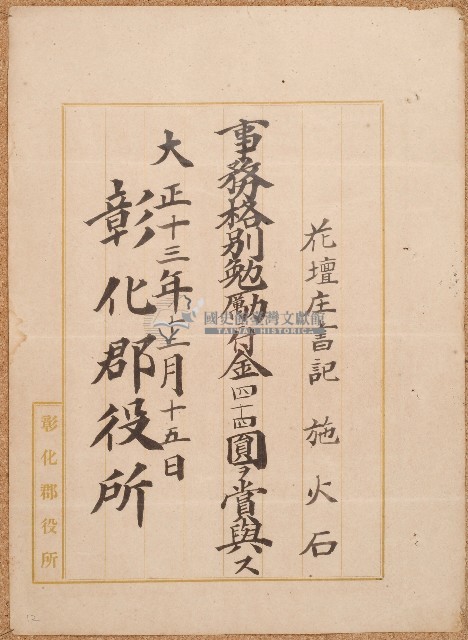 花壇庄書記 施火石
事務格別勉勵ニ付金四十四圓ヲ賞與ス
大正十三年十二月十五日
彰化郡役所
彰化郡役所
國史館臺灣文獻館
TAIWAN HISTORICA
12